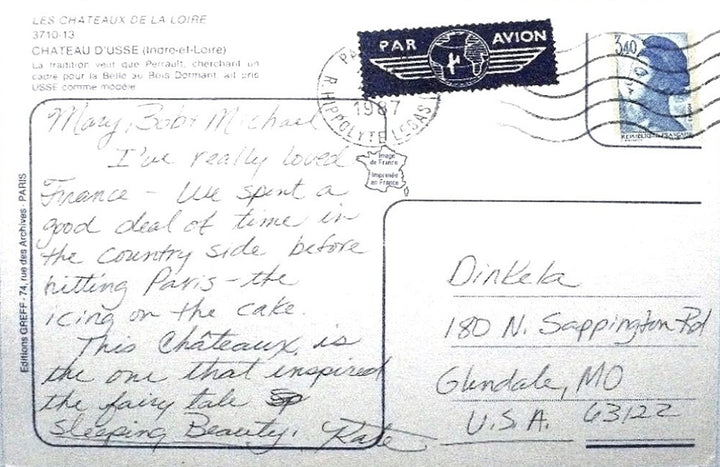 LES CHATEAUX DE LA LOIRE
3710-13
CHATEAU D'USSE (Indre-et-Loire)
La tradition veut que Perrault, cherchant un
cadre pour la Belle au Bois Dormant, ait pris
USSE comme modèle.
PAR AVION
PA
1987
R. HIPPOLYTE LEBAS
3,40
REPUBLIQUE FRANÇAISE
Image
de France
Imprimée
en France
Editions GREFF - 74, rue des Archives - PARIS
Mary, Bob & Michael
I've really loved
France - We spent a
good deal of time in
the country side before
hitting Paris - the
icing on the cake.
This Châteaux is
the one that inspired
the fairy tale Sp
Sleeping Beauty. Kate
Dinkela
180 N. Sappington Rd
Glendale, MO
U.S.A. 63122